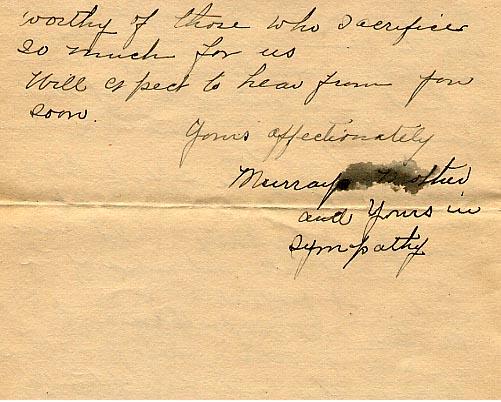 worthy of those who sacrifices
so much for us
Will expect to hear from you
soon.
Yours affectionately
Murrays Mother
and Yours in
sympathy